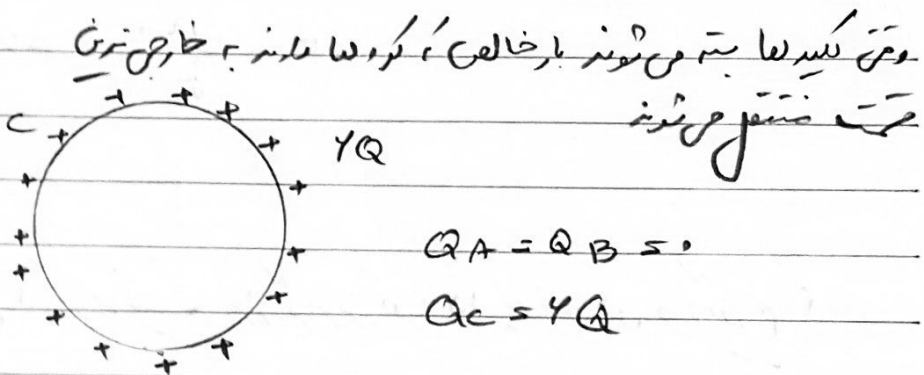 وقتی کلیدها بسته می‌شوند بار خالصی که کره‌ها دارند به خارجی‌ترین
قسمت منتقل می‌شوند
C
۲Q
QA = QB = ۰
QC = ۲Q